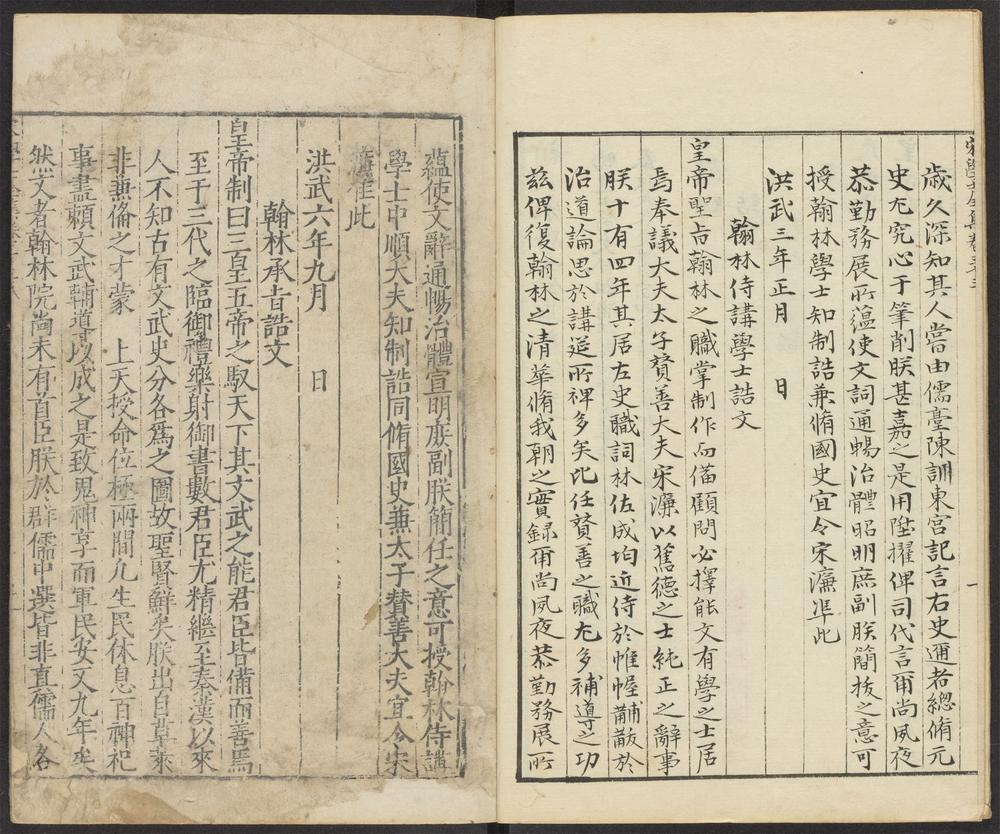 歲久深知其人嘗由儒臺陳訓東宮記言右史邇者總脩元
史尤究心于筆削朕甚嘉之是用陞擢俾司代言爾尚夙夜
恭勤務展所蘊使文詞通暢治體昭明庶副朕簡拔之意可
授翰林學士知制誥兼脩國史宜令宋濂准此
洪武三年正月 日
翰林侍講學士誥文
皇帝聖旨翰林之職掌制作而備顧問必擇能文有學之士居
焉奉議大夫太子贊善大夫宋濂以舊德之士純正之辭事
朕十有四年其居左史職詞林佐成均近侍於帷幄黼黻於
治道論思於講筵所裨多矣比任贊善之職尤多補導之功
茲俾復翰林之清華脩我朝之實録爾尚夙夜恭勤務展所
蘊使文辭通暢治體宣明庶副朕簡任之意可授翰林侍講
學士中順大夫知制誥同脩國史兼太子贊善大夫宜令宋
濂准此
洪武六年九月 日
翰林承旨誥文
皇帝制曰三皇五帝之馭天下其文武之能君臣皆備而善焉
至于三代之臨御禮樂射御書數君臣尤精繼至秦漢以來
人不知古有文武史分各爲之圖故聖賢鮮矣朕出自草萊
非兼倫之才蒙 上天授命位極兩間凡生民休息百神祀
事盡賴文武輔導以成之是致鬼神享而軍民安又九年矣
然文者翰林院尚未有首臣朕於群儒中選皆非真儒人各